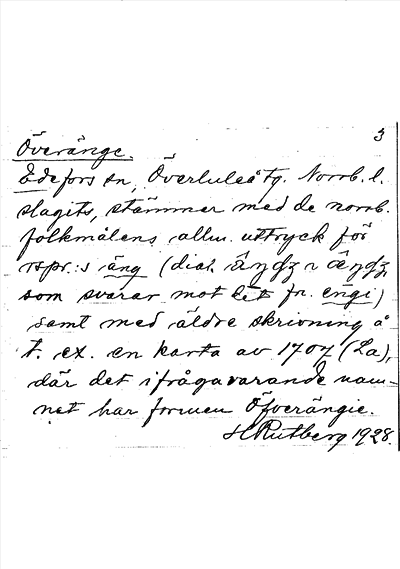 3
Överänge.
Edefors sn, Överluleå tg. Norrb. l.
slagits, stämmer med de norrb.
folkmålens allm. uttryck för
rspr:s äng (dial.
som svarar mot det fn. engi)
samt med äldre skrivning å
t. ex. en karta av 1707 (La),
där det ifrågavarande nam-
net har formen Öfverängie.
H Rutberg 1928.